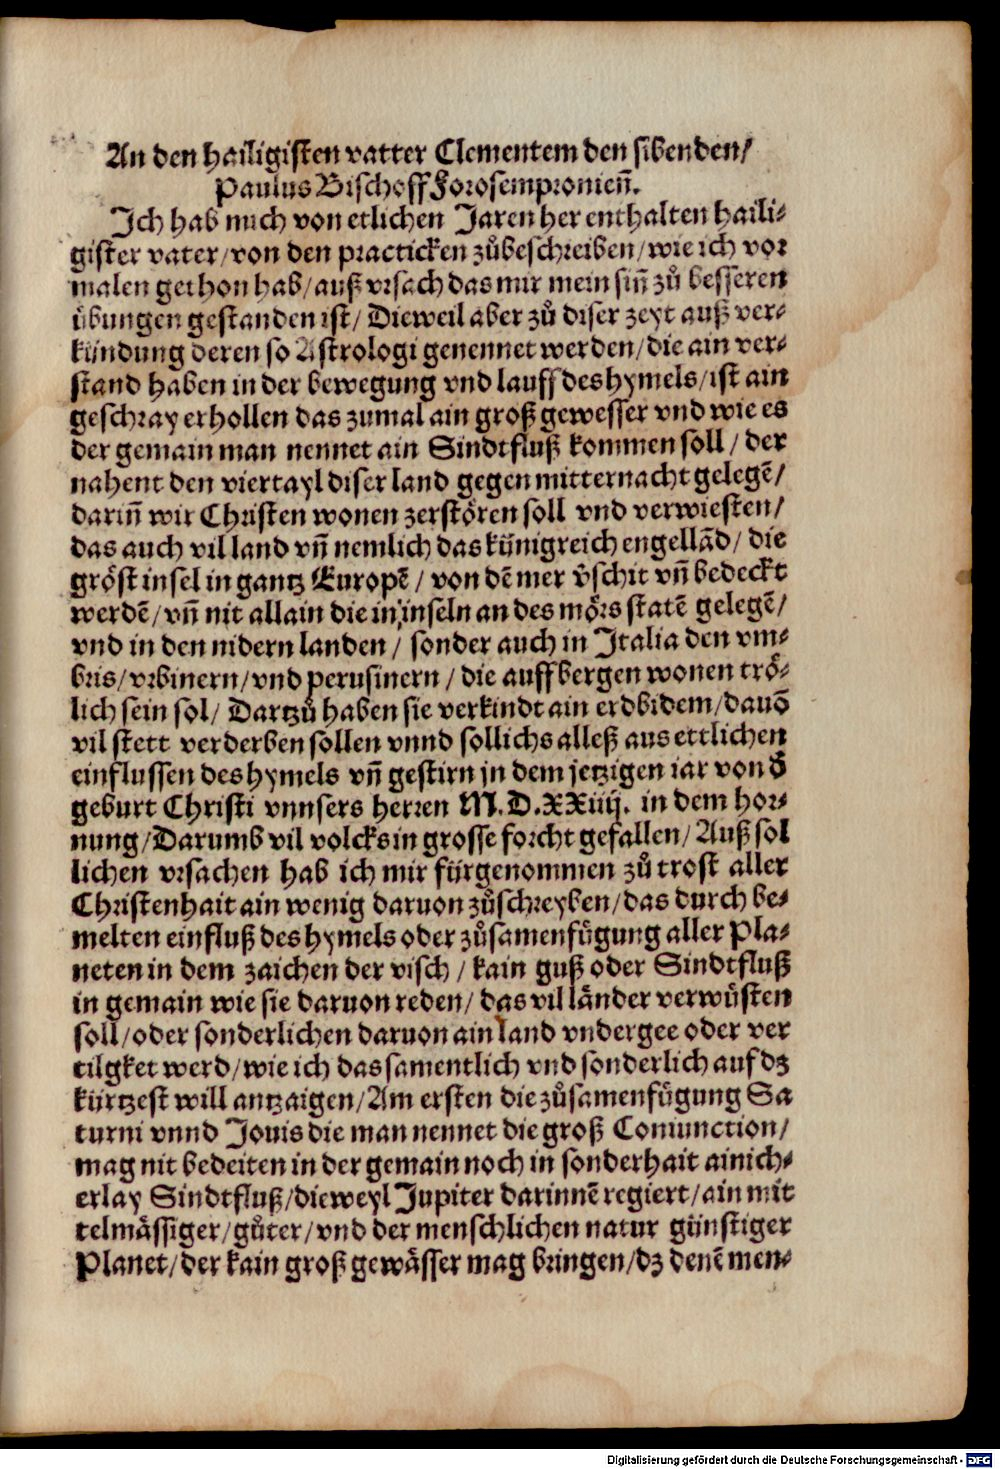 An den hailigisten vatter Clementem den sibenden/
Paulus Bischoff Forosempronieñ.
Ich hab mich von etlichen Jaren her enthalten haili⸗
gister vater/von den practicken zůbeschreiben/wie ich vor
malen gethon hab/auß vrsach das mir mein siñ zů besseren
übungen gestanden ist/ Dieweil aber zů diser zeyt auß ver⸗
kündung deren so Astrologi genennet werden/die ain ver⸗
stand haben in der bewegung vnd lauff des hymels/ist ain
geschray erhollen das zumal ain groß gewesser vnd wie es
der gemain man nennet ain Sindtfluß kommen soll/ der
nahent den viertayl diser land gegen mitternacht gelegẽ/
dariñ wir Christen wonen zerstören soll vnd verwiesten/
das auch vil land vñ nemlich das künigreich engellãd/ die
gröst insel in gantz Europẽ/ von dẽ mer v̂schit vñ bedeckt
werdẽ/vñ nit allain die in inseln an des mörs statẽ gelegẽ/
vnd in den nidern landen/ sonder auch in Italia den vm⸗
bris/vrbinern/vnd perusinern/ die auff bergen wonen trö⸗
lich sein sol/ Dartzů haben sie verkindt ain erdbidem/dauõ
vil stett verderben sollen vnnd sollichs alleß aus ettlichen
einflussen des hymels vñ gestirn in dem jetzigen iar von d̃
geburt Christi vnnsers herren M.D.XXiiij. in dem hor⸗
nung/Darumb vil volcks in grosse forcht gefallen/Auß sol
lichen vrsachen hab ich mir fürgenommen zů trost aller
Christenhait ain wenig daruon zůschreyben/das durch be⸗
melten einfluß des hymels oder zůsamenfügung aller Pla⸗
neten in dem zaichen der visch/ kain guß oder Sindtfluß
in gemain wie sie daruon reden/ das vil länder verwüsten
soll/oder sonderlichen daruon ain land vndergee oder ver
tilgket werd/wie ich das samentlich vnd sonderlich auf dz
kürtzest will antzaigen/Am ersten die zůsamenfügung Sa
turni vnnd Jouis die man nennet die groß Coniunction/
mag nit bedeiten in der gemain noch in sonderhait ainich⸗
erlay Sindtfluß/dieweyl Jupiter darinnẽ regiert/ain mit
telmässiger/gůter/vnd der menschlichen natur günstiger
Planet/der kain groß gewässer mag bringen/dz denẽ men⸗
Digitalisierung gefördert durch die Deutsche Forschungsgemeinschaft - DFG